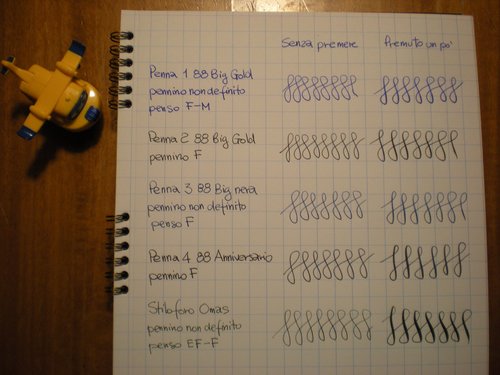 Senza premere Premuto un po'
Penna 1 88 Big Gold
pennino non definito
penso F-M
Penna 2 88 Big Gold
pennino F
Penna 3 88 Big nera
pennino non definito
penso F
Penna 4 88 Anniversario
pennino F
Stiloforo Omas
pennino non definito
penso EF-F